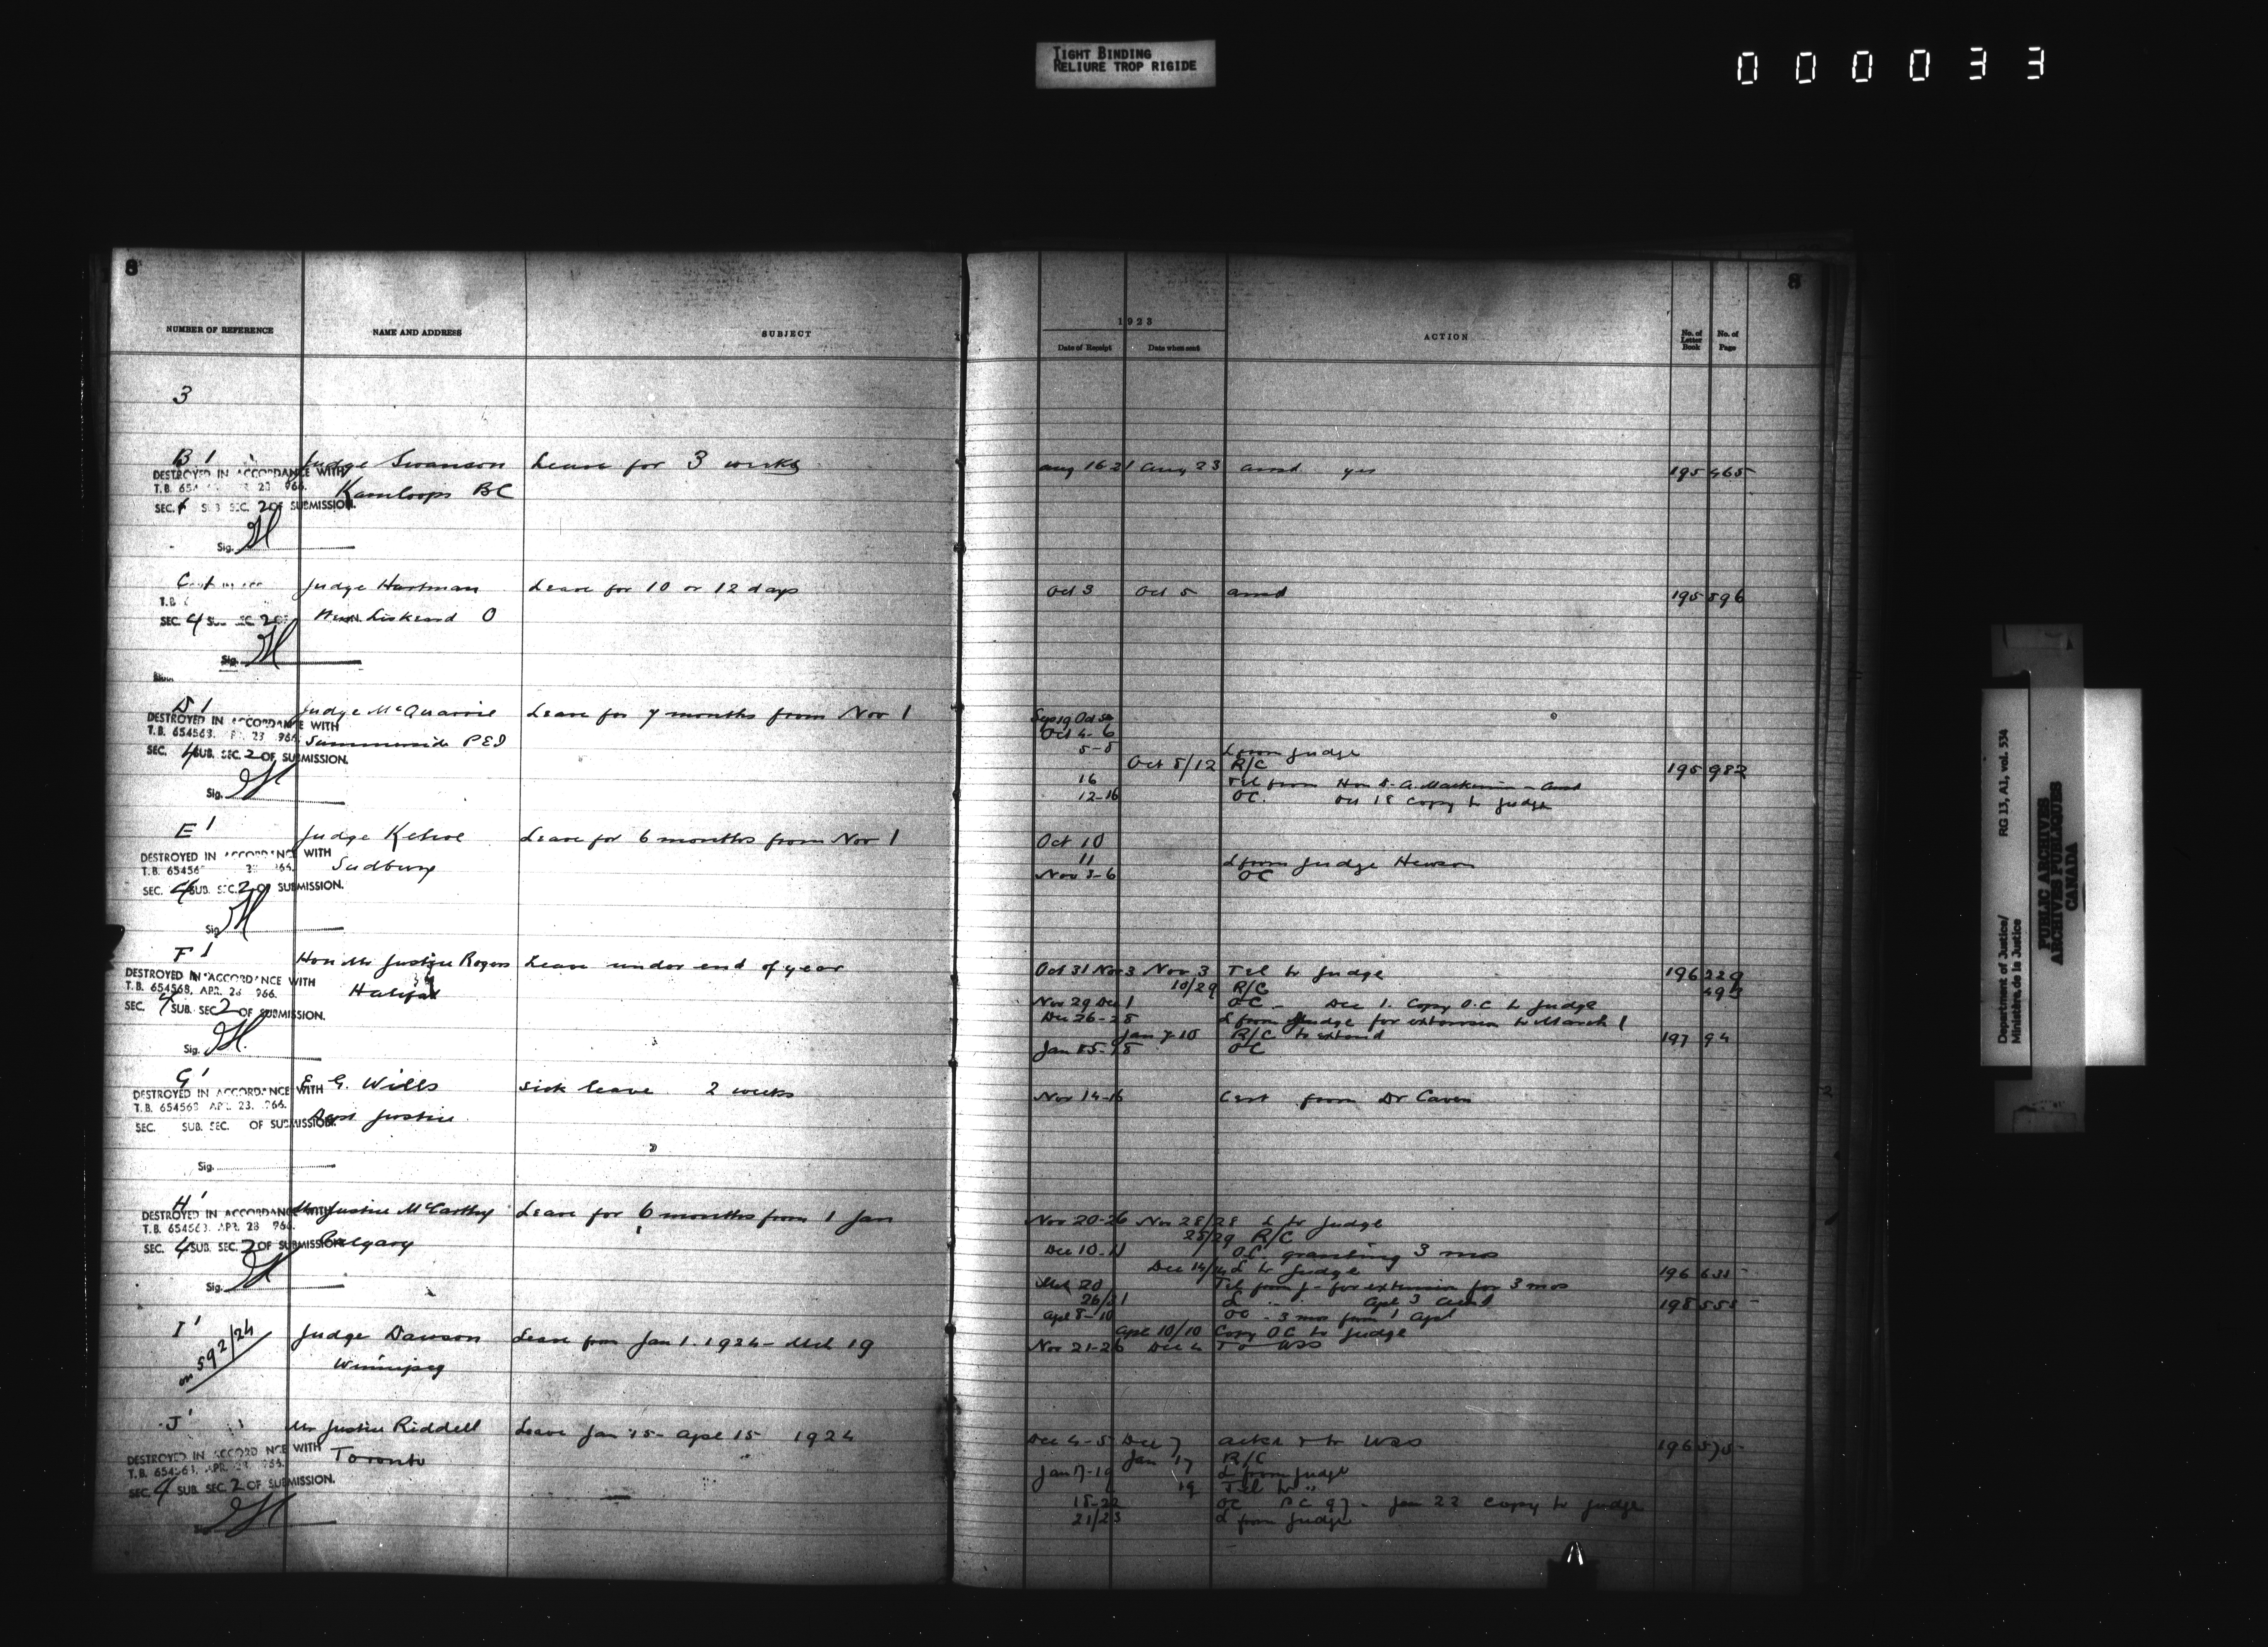 TIGHT BINDING
RELIURE TROP RIGIDE
000033
8
8
NUMBER OF REFERENCE NAME AND ADDRESS SUBJECT
1923
Date of Receipt Date when sent ACTION No. of Letter Book No. of Page
3
B 1 Judge Swanson Leave for 3 weeks Aug 16 21 Aug 23 yes 195 465
DESTROYED IN ACCORDANCE WITH
Kamloops BC
SEC. SUB SEC. 2 OF SUBMISSION.
Sig.
C 1 Judge Hartman Leave for 10 or 12 days Oct 3 Oct 5 195 596
T.B.
SEC. 4 SUB. SEC. 2 OF Liskeard O
Sig.
D 1 Judge McQuarrie Leave for 7 months from Nov 1
DESTROYED IN ACCORDANCE WITH Oct 4-6
T.B. 654568. APR. 23 966. Summerside PEI 5-8 L from Judge
SEC. 4 SUB. SEC. 2 OF SUBMISSION. Oct 8/12 R/C 195 982
16 Tel from Hon
Sig. 12-16 OC. Copy to Judge
E 1 Judge Kehoe Leave for 6 months from Nov 1 Oct 10
DESTROYED IN ACCORDANCE WITH 11 L from Judge Hewson
T.B. 65456 Sudbury Nov 3-6 OC
SEC. 4 SUB. SEC. 2 OF SUBMISSION.
Sig.
F 1 Hon Mr Justice Rogers Leave under end of year Oct 31 Nov 3 Nov 3 Tel to Judge 196 229
DESTROYED IN ACCORDANCE WITH 10/29 R/C 493
T.B. 654568, APR. 23 966. Halifax Nov 29 Dec 1 OC - Dec 1. Copy O.C to Judge
SEC. 4 SUB. SEC 2 OF SUBMISSION. Dec 26-28 L from Judge for extension to March 1
Jan 7 10 R/C to extend 197 94
Sig. Jan 15-18 OC
G 1 E G. Wills Sick leave 2 weeks Nov 14-16 Cert from Dr Caven
DESTROYED IN ACCORDANCE WITH
T.B. 654568 APR. 23. 966. Dept Justice
SEC. SUB. SEC. OF SUBMISSION.
Sig.
H 1 Mr Justice McCarthy Leave for 6 months from 1 Jan Nov 20-26 Nov 28/28 L to Judge
DESTROYED IN ACCORDANCE WITH 28/29 R/C
T.B. 654563. APR. 28 966. Calgary Dec 10-11 O.C. granting 3 mos
SEC. 4 SUB. SEC. 2 OF SUBMISSION. Dec 14/14 L to Judge 196 633
Sig. Mch 20 Tel from J - for extension for 3 mos
26/31 L Apl 3 198 558
Apl 8-10 OC - 3 mos from 1 Apl
Apl 10/10 Copy OC to Judge
I 1 Judge Dawson Leave from Jan 1. 1924 - Mch 19 Nov 21-26 Dec 4 To WSS
on 592/24 Winnipeg
J 1 Mr Justice Riddell Leave Jan 15 - Apl 15 1924 Dec 4-5 Dec 7 ackd & to WSS 196 575
DESTROYED IN ACCORDANCE WITH Toronto Jan 17 R/C
T.B. 654563, APR. Jan 17-19 L from Judge
SEC. 4 SUB. SEC. 2 OF SUBMISSION. 19 Tel to "
18-22 OC PC 97 - Jan 22 Copy to Judge
21/23 L from Judge
Department of Justice/
Ministère de la Justice
RG 13, A1, vol. 534
PUBLIC ARCHIVES
ARCHIVES PUBLIQUES
CANADA